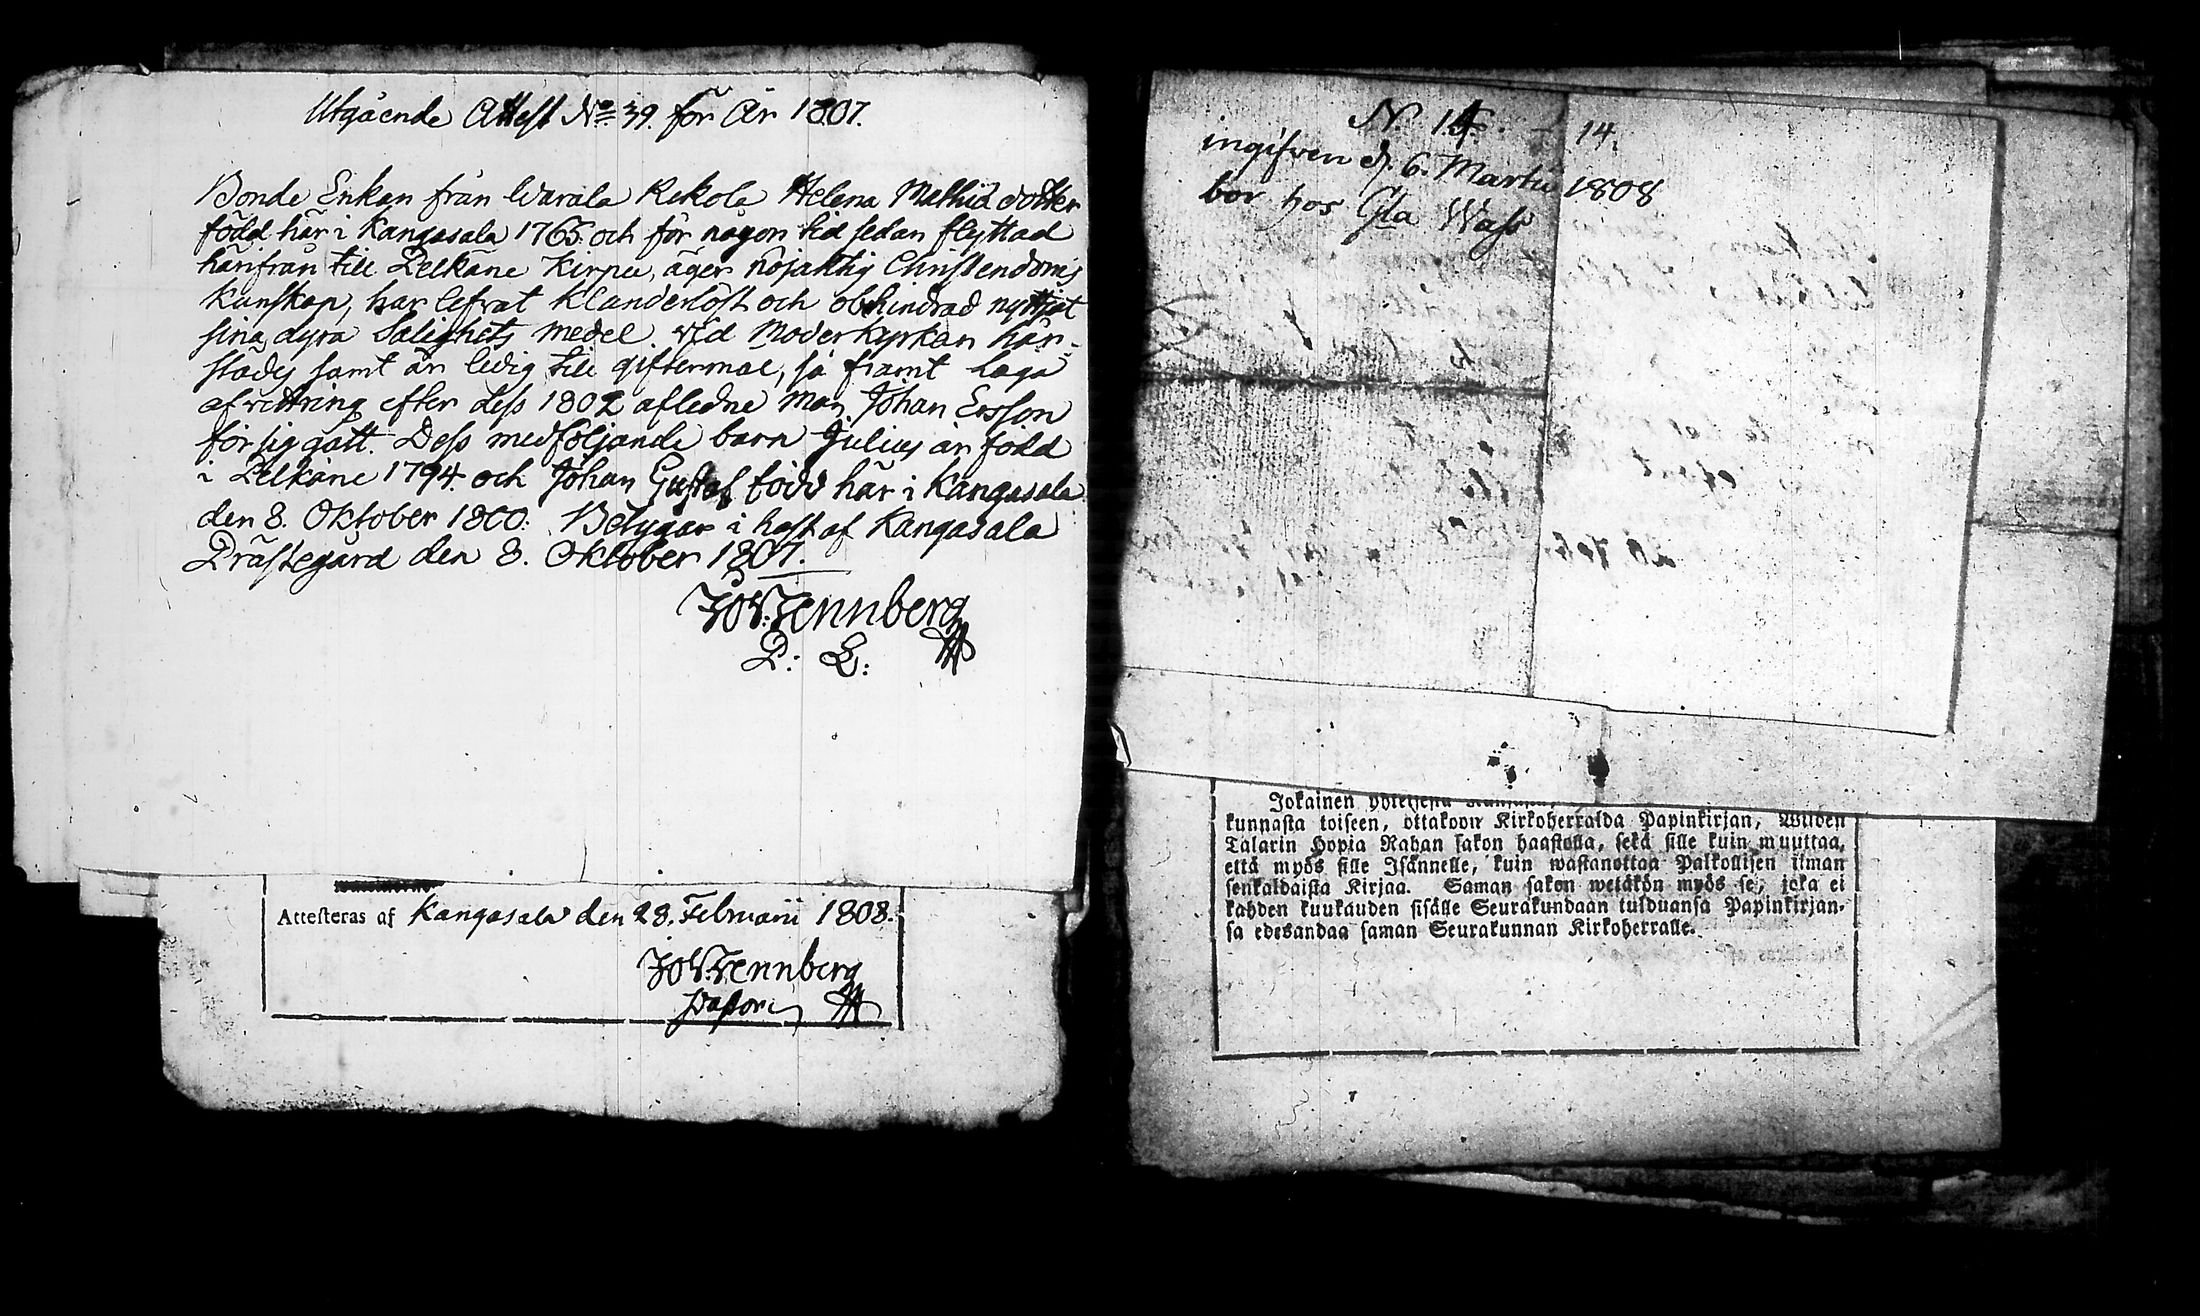 Utgående Attest No 39. för År 1807.
Bonde Enkan från Warala Rekola Helena Mathiædotter
född här i Kangasala 1765. och för någon tid sedan flyttad
härifrån till Pelkäne Kirpu, äger nöjaktig Christendoms
kunskap, har lefvat klanderlöst och obehindrad nyttjat
sina dyra Salighets medel vid Moderkyrkan här-
städes samt är ledig till giftermål, så framt laga
afvittring efter dess 1802 afledne man Johan Ersson
för sig gått. Dess medföljande barn Julius är född
i Pelkäne 1794. och Johan Gustaf född här i Kangasala
den 8. Oktober 1800. Betygar i hast af Kangasala
Prästegård den 8. Oktober 1807.
Jo V: Tennberg
P: L:
Attesteras af Kangasala den 28. Februarii 1808.
Jo V: Tennberg
Pastor
N. 14. - 14.
ingifven d. 6. Martii 1808
bor hos Gla Wass
Jokainen
kunnasta toiseen, ottakoon Kirkoherralda Papinkirjan, Wijden
Talarin Hopia Rahan sakon haastolla, sekä sille kuin muuttaa,
että myös sille Isännelle, kuin wastanottaa Palkollisen ilman
senkaldaista Kirjaa. Saman sakon wetäkön myös se, joka ei
kahden kuukauden sisälle Seurakundaan tulduansa Papinkirjan-
sa edesandaa saman Seurakunnan Kirkoherralle.